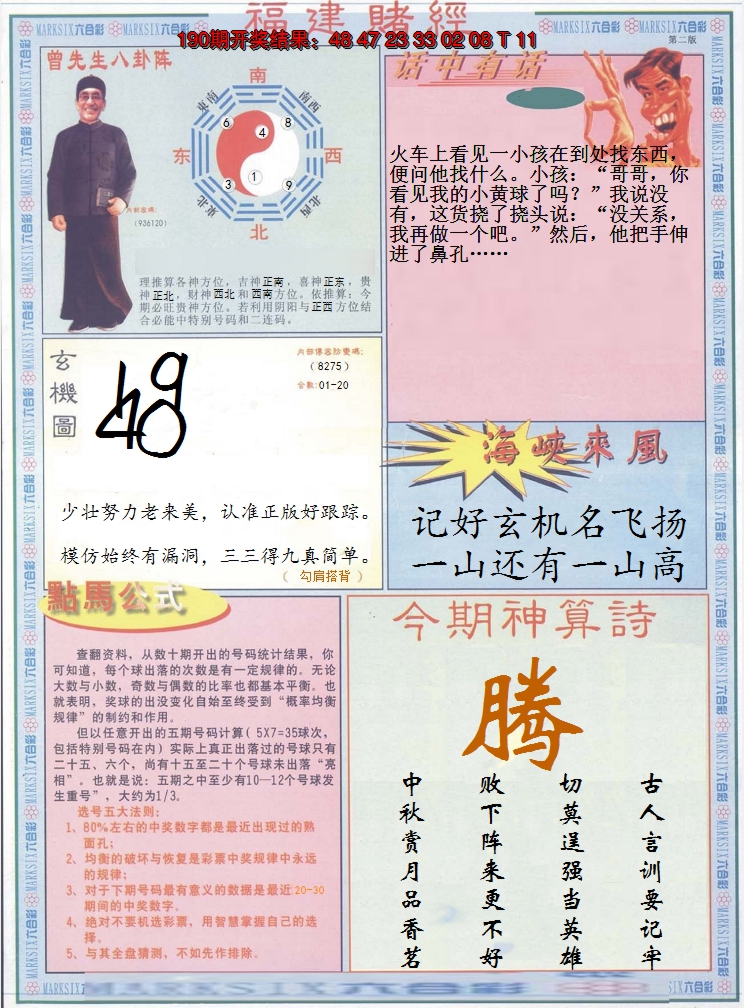 福建賭經
190期开奖结果：48 47 23 33 02 08 T 11
MARKSIX六合彩 MARKSIX六合彩 MARKSIX六合彩 MARKSIX六合彩
第二版
曾先生八卦陈
南
東南
南西
6
8
4
东
西
1
3
9
東北
北西
北
內部密碼:
(936120)
理推算各神方位，吉神正南，喜神正东，贵
神正北，财神西北和西南方位。依推算：今
期必旺贵神方位。若利用阴阳与正西方位结
合必能中特别号码和二连码。
话中有话
火车上看见一小孩在到处找东西，
便问他找什么。小孩：“哥哥，你
看见我的小黄球了吗？”我说没
有，这货挠了挠头说：“没关系，
我再做一个吧。”然后，他把手伸
进了鼻孔……
玄機圖
內部傳密防變碼:
(8275)
合數:01-20
少壮努力老来美，认准正版好跟踪。
模仿始终有漏洞，三三得九真简单。
（ 勾肩搭背 ）
海峽來風
记好玄机名飞扬
一山还有一山高
點馬公式
查翻资料，从数十期开出的号码统计结果，你
可知道，每个球出落的次数是有一定规律的。无论
大数与小数，奇数与偶数的比率也都基本平衡。也
就表明，奖球的出没变化自始至终受到“概率均衡
规律”的制约和作用。
但以任意开出的五期号码计算( 5X7=35球次，
包括特别号码在内) 实际上真正出落过的号球只有
二十五、六个，尚有十五至二十个号球未出落“亮
相”。也就是说：五期之中至少有10—12个号球发
生重号”，大约为1/3。
选号五大法则：
1、80%左右的中奖数字都是最近出现过的熟
面孔；
2、均衡的破坏与恢复是彩票中奖规律中永远
的规律；
3、对于下期号码最有意义的数据是最近20-30
期间的中奖数字。
4、绝对不要机选彩票，用智慧掌握自己的选
择。
5、与其全盘猜测，不如先作排除。
今期神算詩
腾
古人言训要记牢
切莫逞强当英雄
败下阵来更不好
中秋赏月品香茗